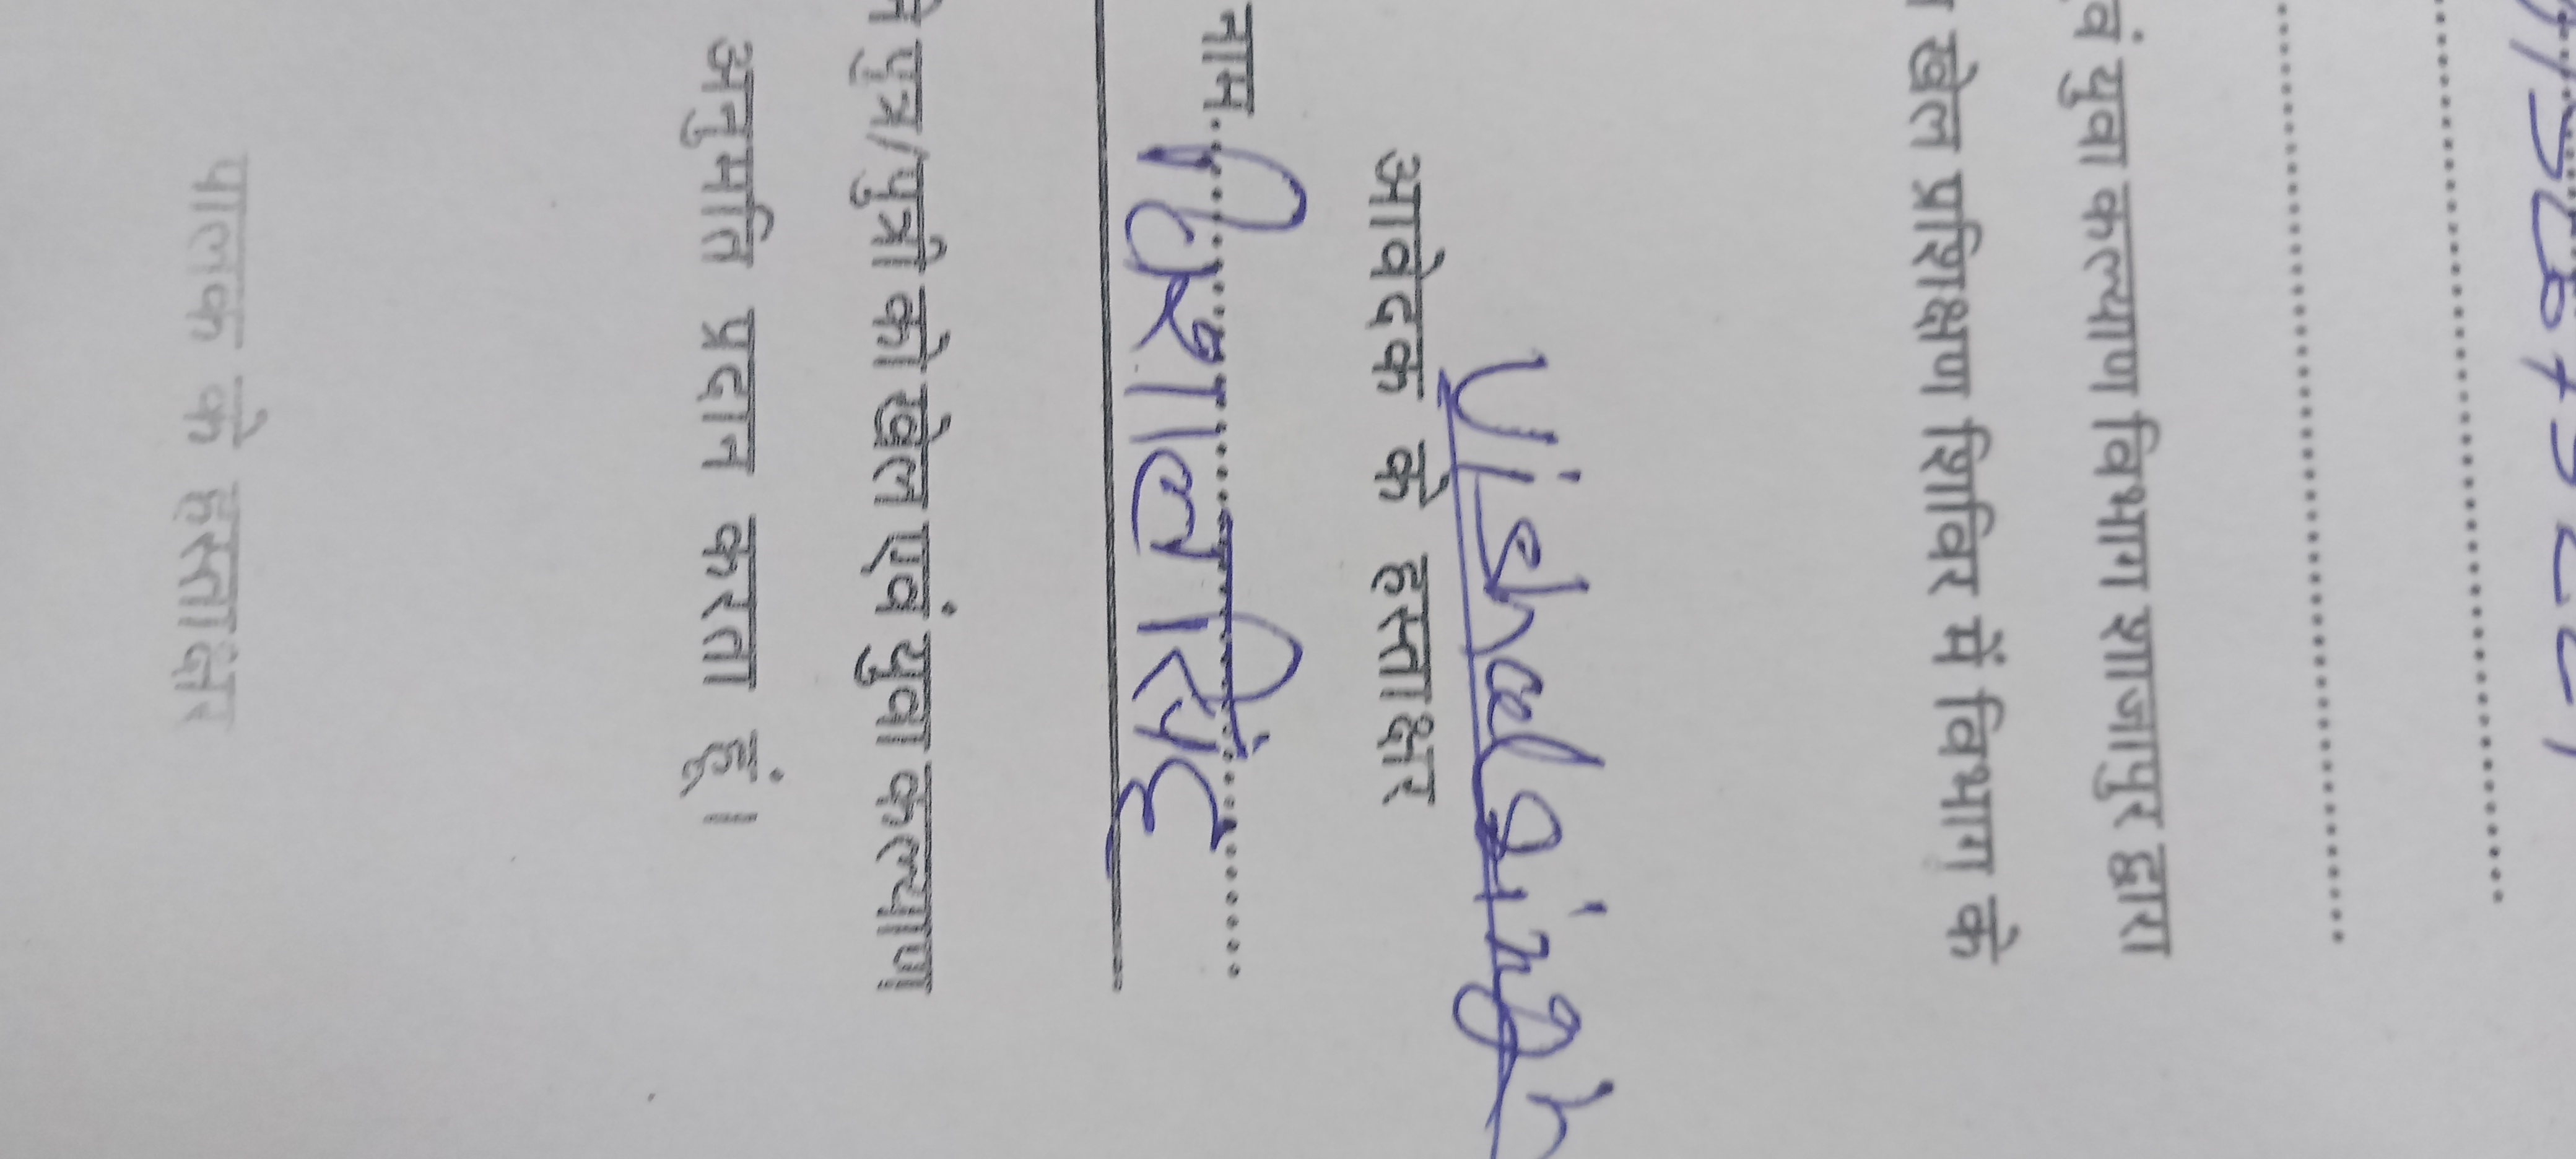 एवं युवा कल्याण विभाग शाजापुर द्वारा
खेल प्रशिक्षण शिविर में विभाग के
Vishal singh
आवेदक के हस्ताक्षर
नाम..विशाल सिंह..........
पुत्र/पुत्री को खेल एवं युवा कल्याण
अनुमति प्रदान करता हूं।
पालक के हस्ताक्षर